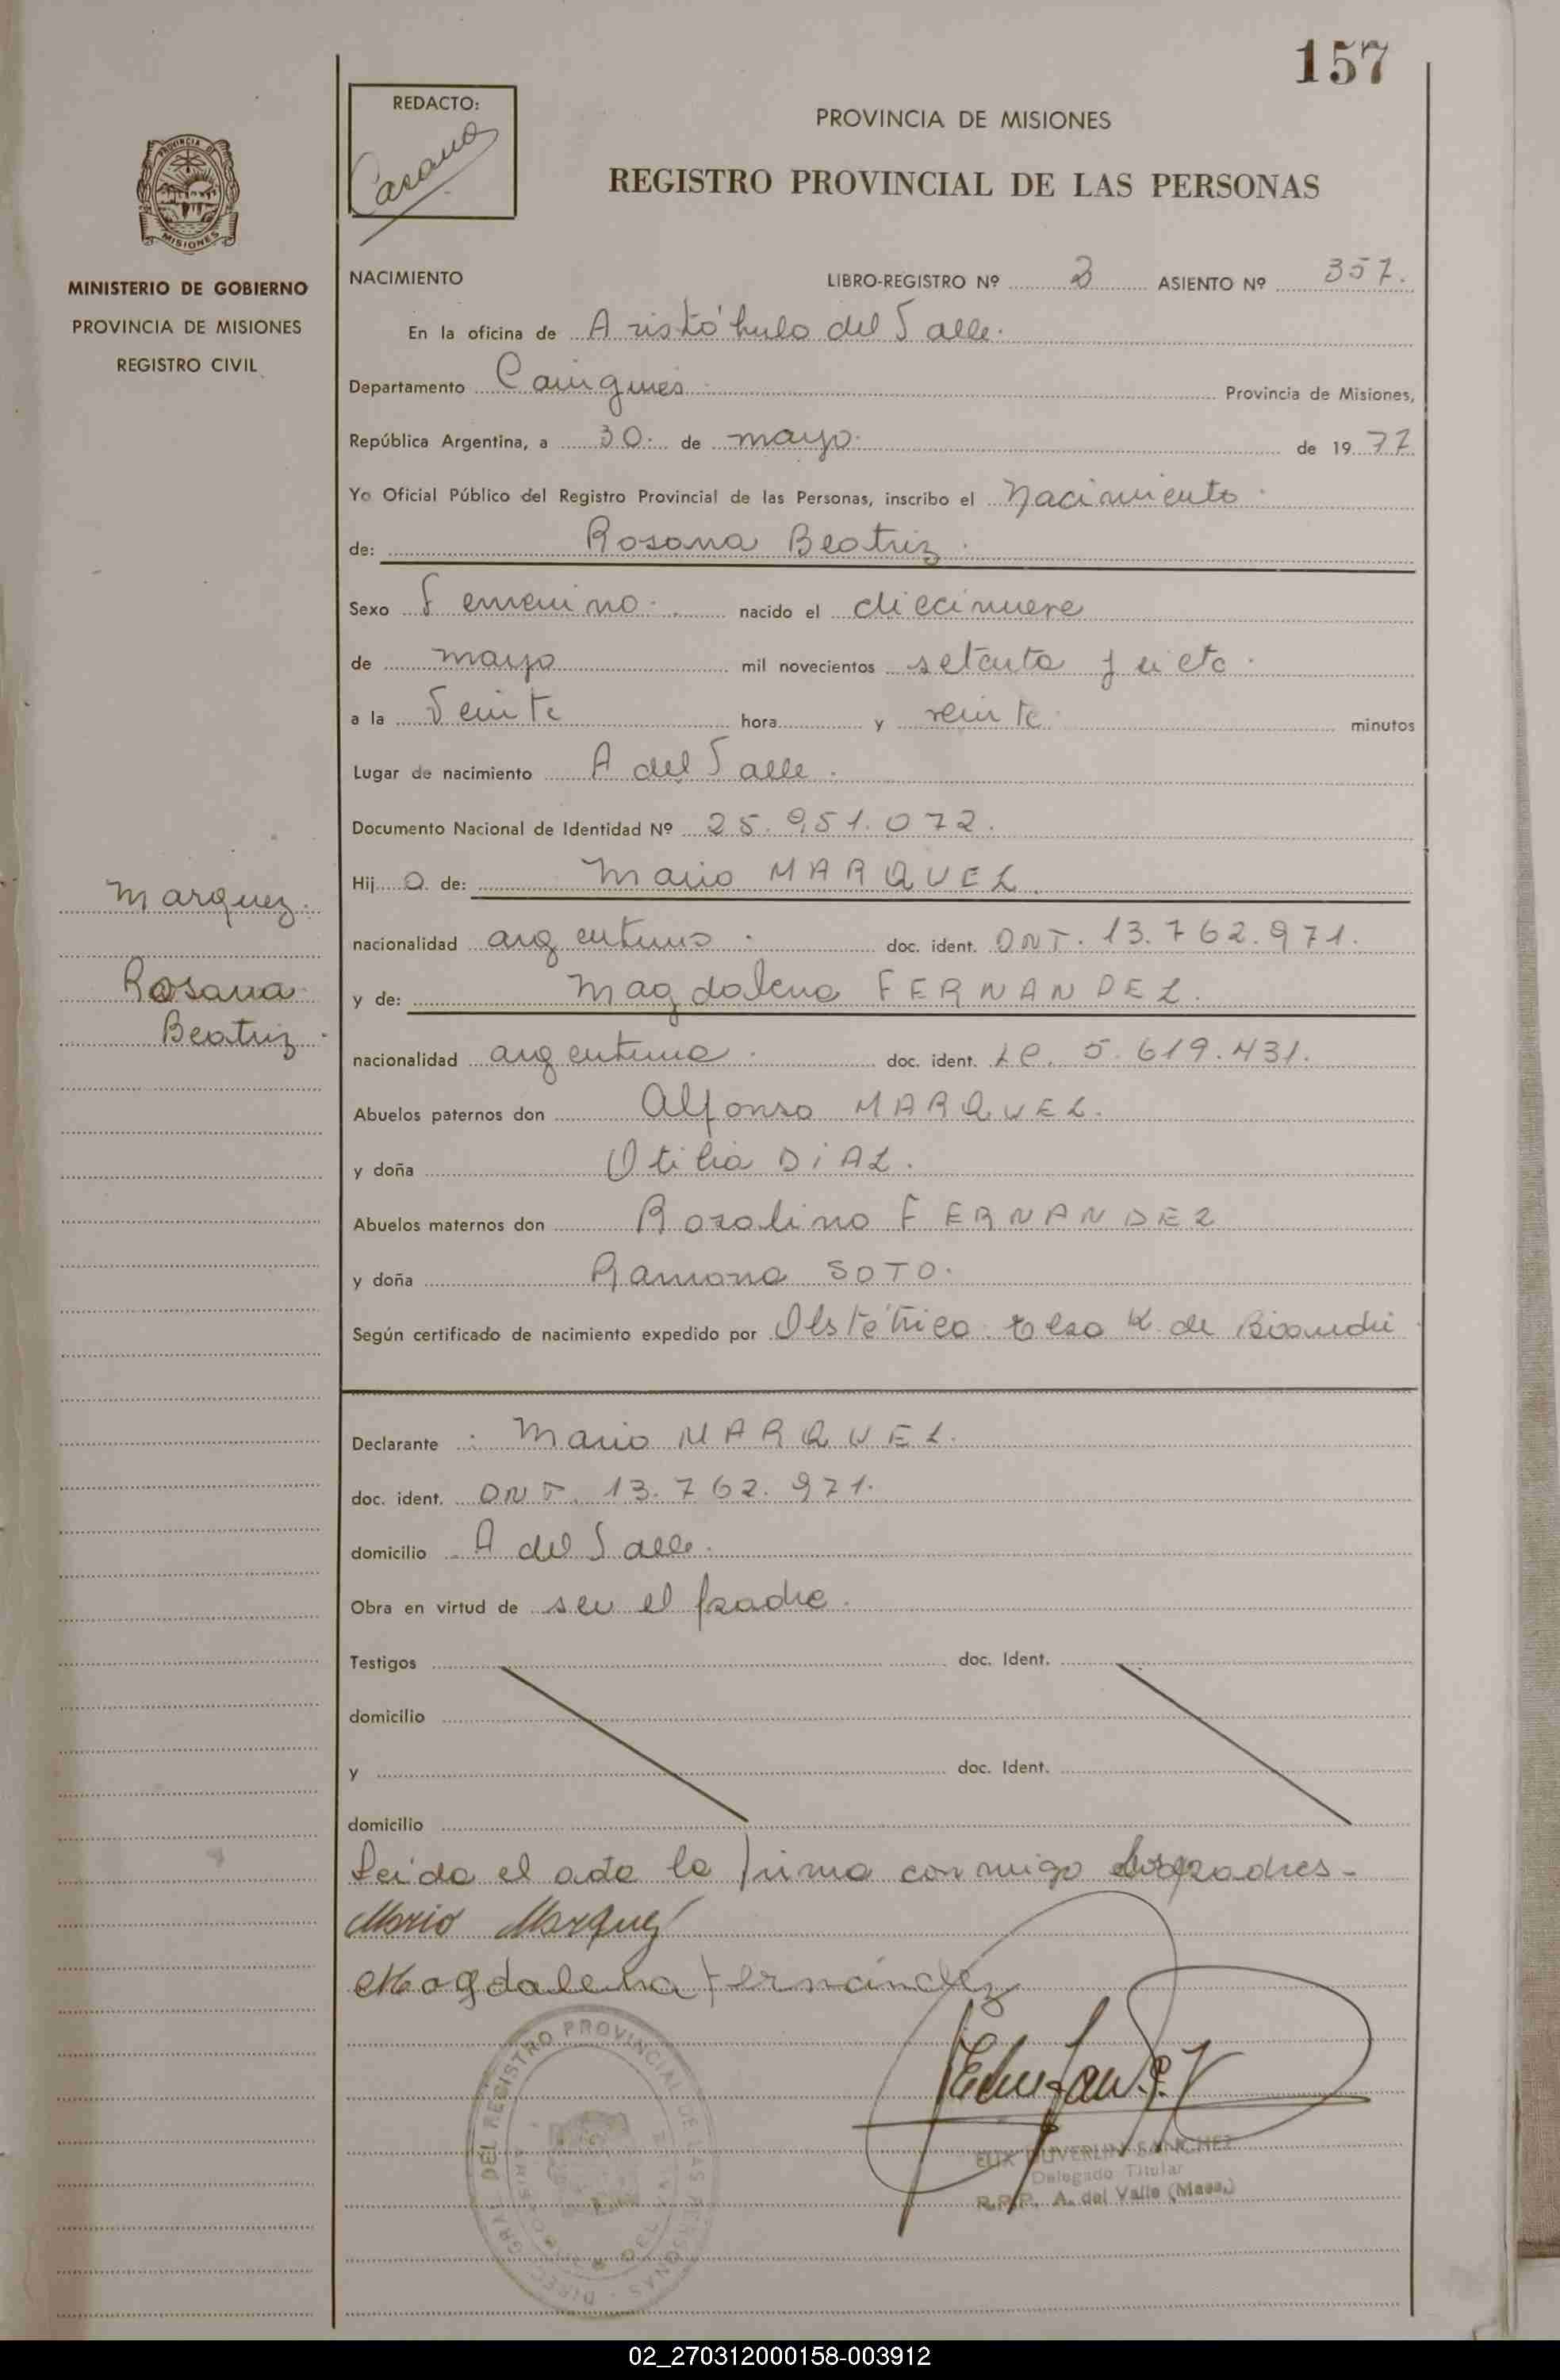 157
REDACTO:
PROVINCIA DE MISIONES
REGISTRO PROVINCIAL DE LAS PERSONAS
PROVINCIA DE
MISIONES
MINISTERIO DE GOBIERNO
PROVINCIA DE MISIONES
REGISTRO CIVIL
NACIMIENTO LIBRO-REGISTRO Nº 2 ASIENTO Nº 357.
En la oficina de Aristóbulo del Valle.
Departamento Cainguas. Provincia de Misiones,
República Argentina, a 30. de mayo. de 1977
Yo Oficial Público del Registro Provincial de las Personas, inscribo el Nacimiento.
de: Rosana Beatriz.
Sexo Femenino. nacido el diecinueve
de mayo mil novecientos setenta y siete.
a la Veinte hora y veinte. minutos
Lugar de nacimiento A del Valle.
Documento Nacional de Identidad Nº 25.951.072.
Hij a de: Mario MARQUEZ.
nacionalidad argentino. doc. ident. DNI. 13.762.971.
y de: Magdalena FERNANDEZ.
nacionalidad argentina. doc. ident. LC. 5.619.431.
Abuelos paternos don Alfonso MARQUEZ.
y doña Otilia DIAZ.
Abuelos maternos don Rozalino FERNANDEZ
y doña Ramona SOTO.
Según certificado de nacimiento expedido por Obstétrica Elsa K. de Biondi
Marquez.
Rosana
Beatriz.
Declarante : Mario MARQUEZ.
doc. ident. DNI. 13.762.971.
domicilio A del Valle.
Obra en virtud de ser el padre.
Testigos doc. Ident.
domicilio
y doc. Ident.
domicilio
Leida el acta la firma conmigo los padres-
Mario Marquez
Magdalena Fernández
DIRECC. GRAL. DEL REGISTRO PROVINCIAL DE LAS PERSONAS
SANCHEZ
Delegado Titular
R.P.P. A. del Valle (Mnes.)
02_270312000158-003912